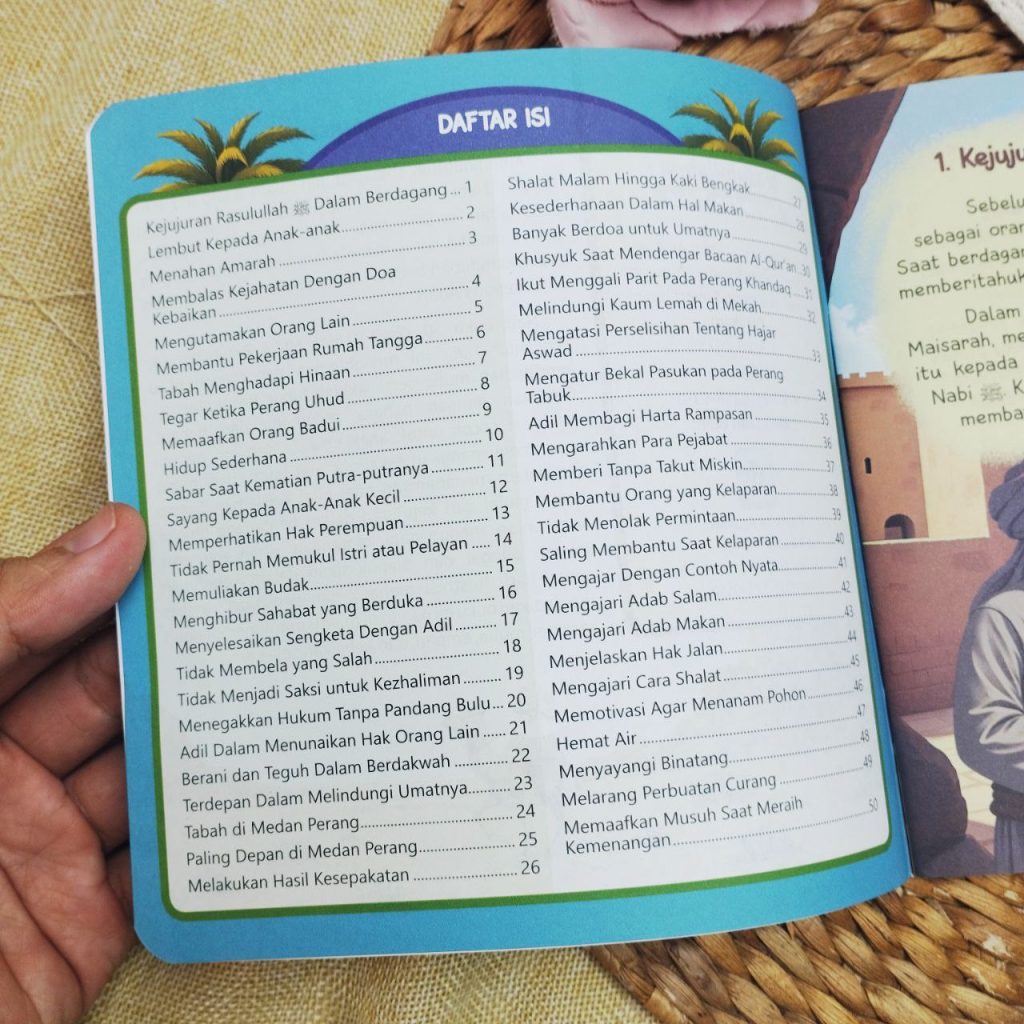 DAFTAR ISI
Kejujuran Rasulullah ﷺ Dalam Berdagang ... 1
Lembut Kepada Anak-anak.......................... 2
Menahan Amarah ........................................ 3
Membalas Kejahatan Dengan Doa
Kebaikan .................................................... 4
Mengutamakan Orang Lain......................... 5
Membantu Pekerjaan Rumah Tangga........... 6
Tabah Menghadapi Hinaan ......................... 7
Tegar Ketika Perang Uhud .......................... 8
Memaafkan Orang Badui............................ 9
Hidup Sederhana ....................................... 10
Sabar Saat Kematian Putra-putranya........... 11
Sayang Kepada Anak-Anak Kecil ................ 12
Memperhatikan Hak Perempuan................. 13
Tidak Pernah Memukul Istri atau Pelayan ..... 14
Memuliakan Budak..................................... 15
Menghibur Sahabat yang Berduka .............. 16
Menyelesaikan Sengketa Dengan Adil .......... 17
Tidak Membela yang Salah......................... 18
Tidak Menjadi Saksi untuk Kezhaliman ......... 19
Menegakkan Hukum Tanpa Pandang Bulu... 20
Adil Dalam Menunaikan Hak Orang Lain ...... 21
Berani dan Teguh Dalam Berdakwah ............ 22
Terdepan Dalam Melindungi Umatnya........... 23
Tabah di Medan Perang............................... 24
Paling Depan di Medan Perang.................... 25
Melakukan Hasil Kesepakatan ..................... 26
Shalat Malam Hingga Kaki Bengkak............ 27
Kesederhanaan Dalam Hal Makan .............. 28
Banyak Berdoa untuk Umatnya .................. 29
Khusyuk Saat Mendengar Bacaan Al-Qur'an ..30
Ikut Menggali Parit Pada Perang Khandaq ....31
Melindungi Kaum Lemah di Mekah.............. 32
Mengatasi Perselisihan Tentang Hajar
Aswad ...................................................... 33
Mengatur Bekal Pasukan pada Perang
Tabuk........................................................ 34
Adil Membagi Harta Rampasan .................. 35
Mengarahkan Para Pejabat ........................ 36
Memberi Tanpa Takut Miskin...................... 37
Membantu Orang yang Kelaparan............... 38
Tidak Menolak Permintaan......................... 39
Saling Membantu Saat Kelaparan ............... 40
Mengajar Dengan Contoh Nyata................. 41
Mengajari Adab Salam............................... 42
Mengajari Adab Makan ............................. 43
Menjelaskan Hak Jalan.............................. 44
Mengajari Cara Shalat ............................... 45
Memotivasi Agar Menanam Pohon ............. 46
Hemat Air ................................................ 47
Menyayangi Binatang................................. 48
Melarang Perbuatan Curang ....................... 49
Memaafkan Musuh Saat Meraih
Kemenangan ............................................. 50
1. Kejuju
Sebelu
sebagai oran
Saat berdagan
memberitahuk
Dalam
Maisarah, me
itu kepada
Nabi ﷺ. K
memba